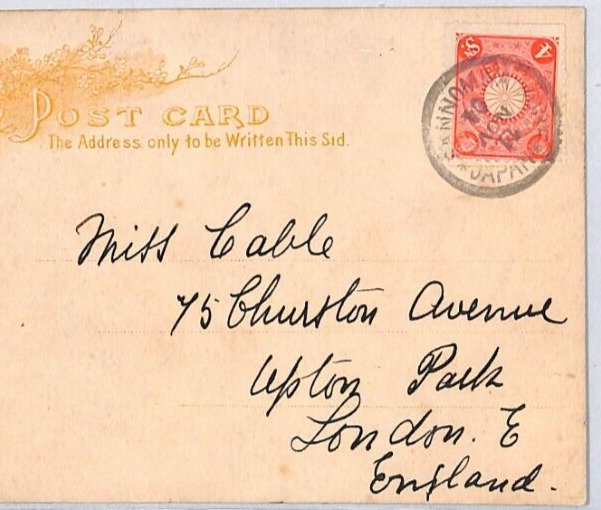 POST CARD
The Address only to be Written This Sid.
4 S
JAPAN
Miss Cable
75 Churston Avenue
Upton Park
London. E
England.